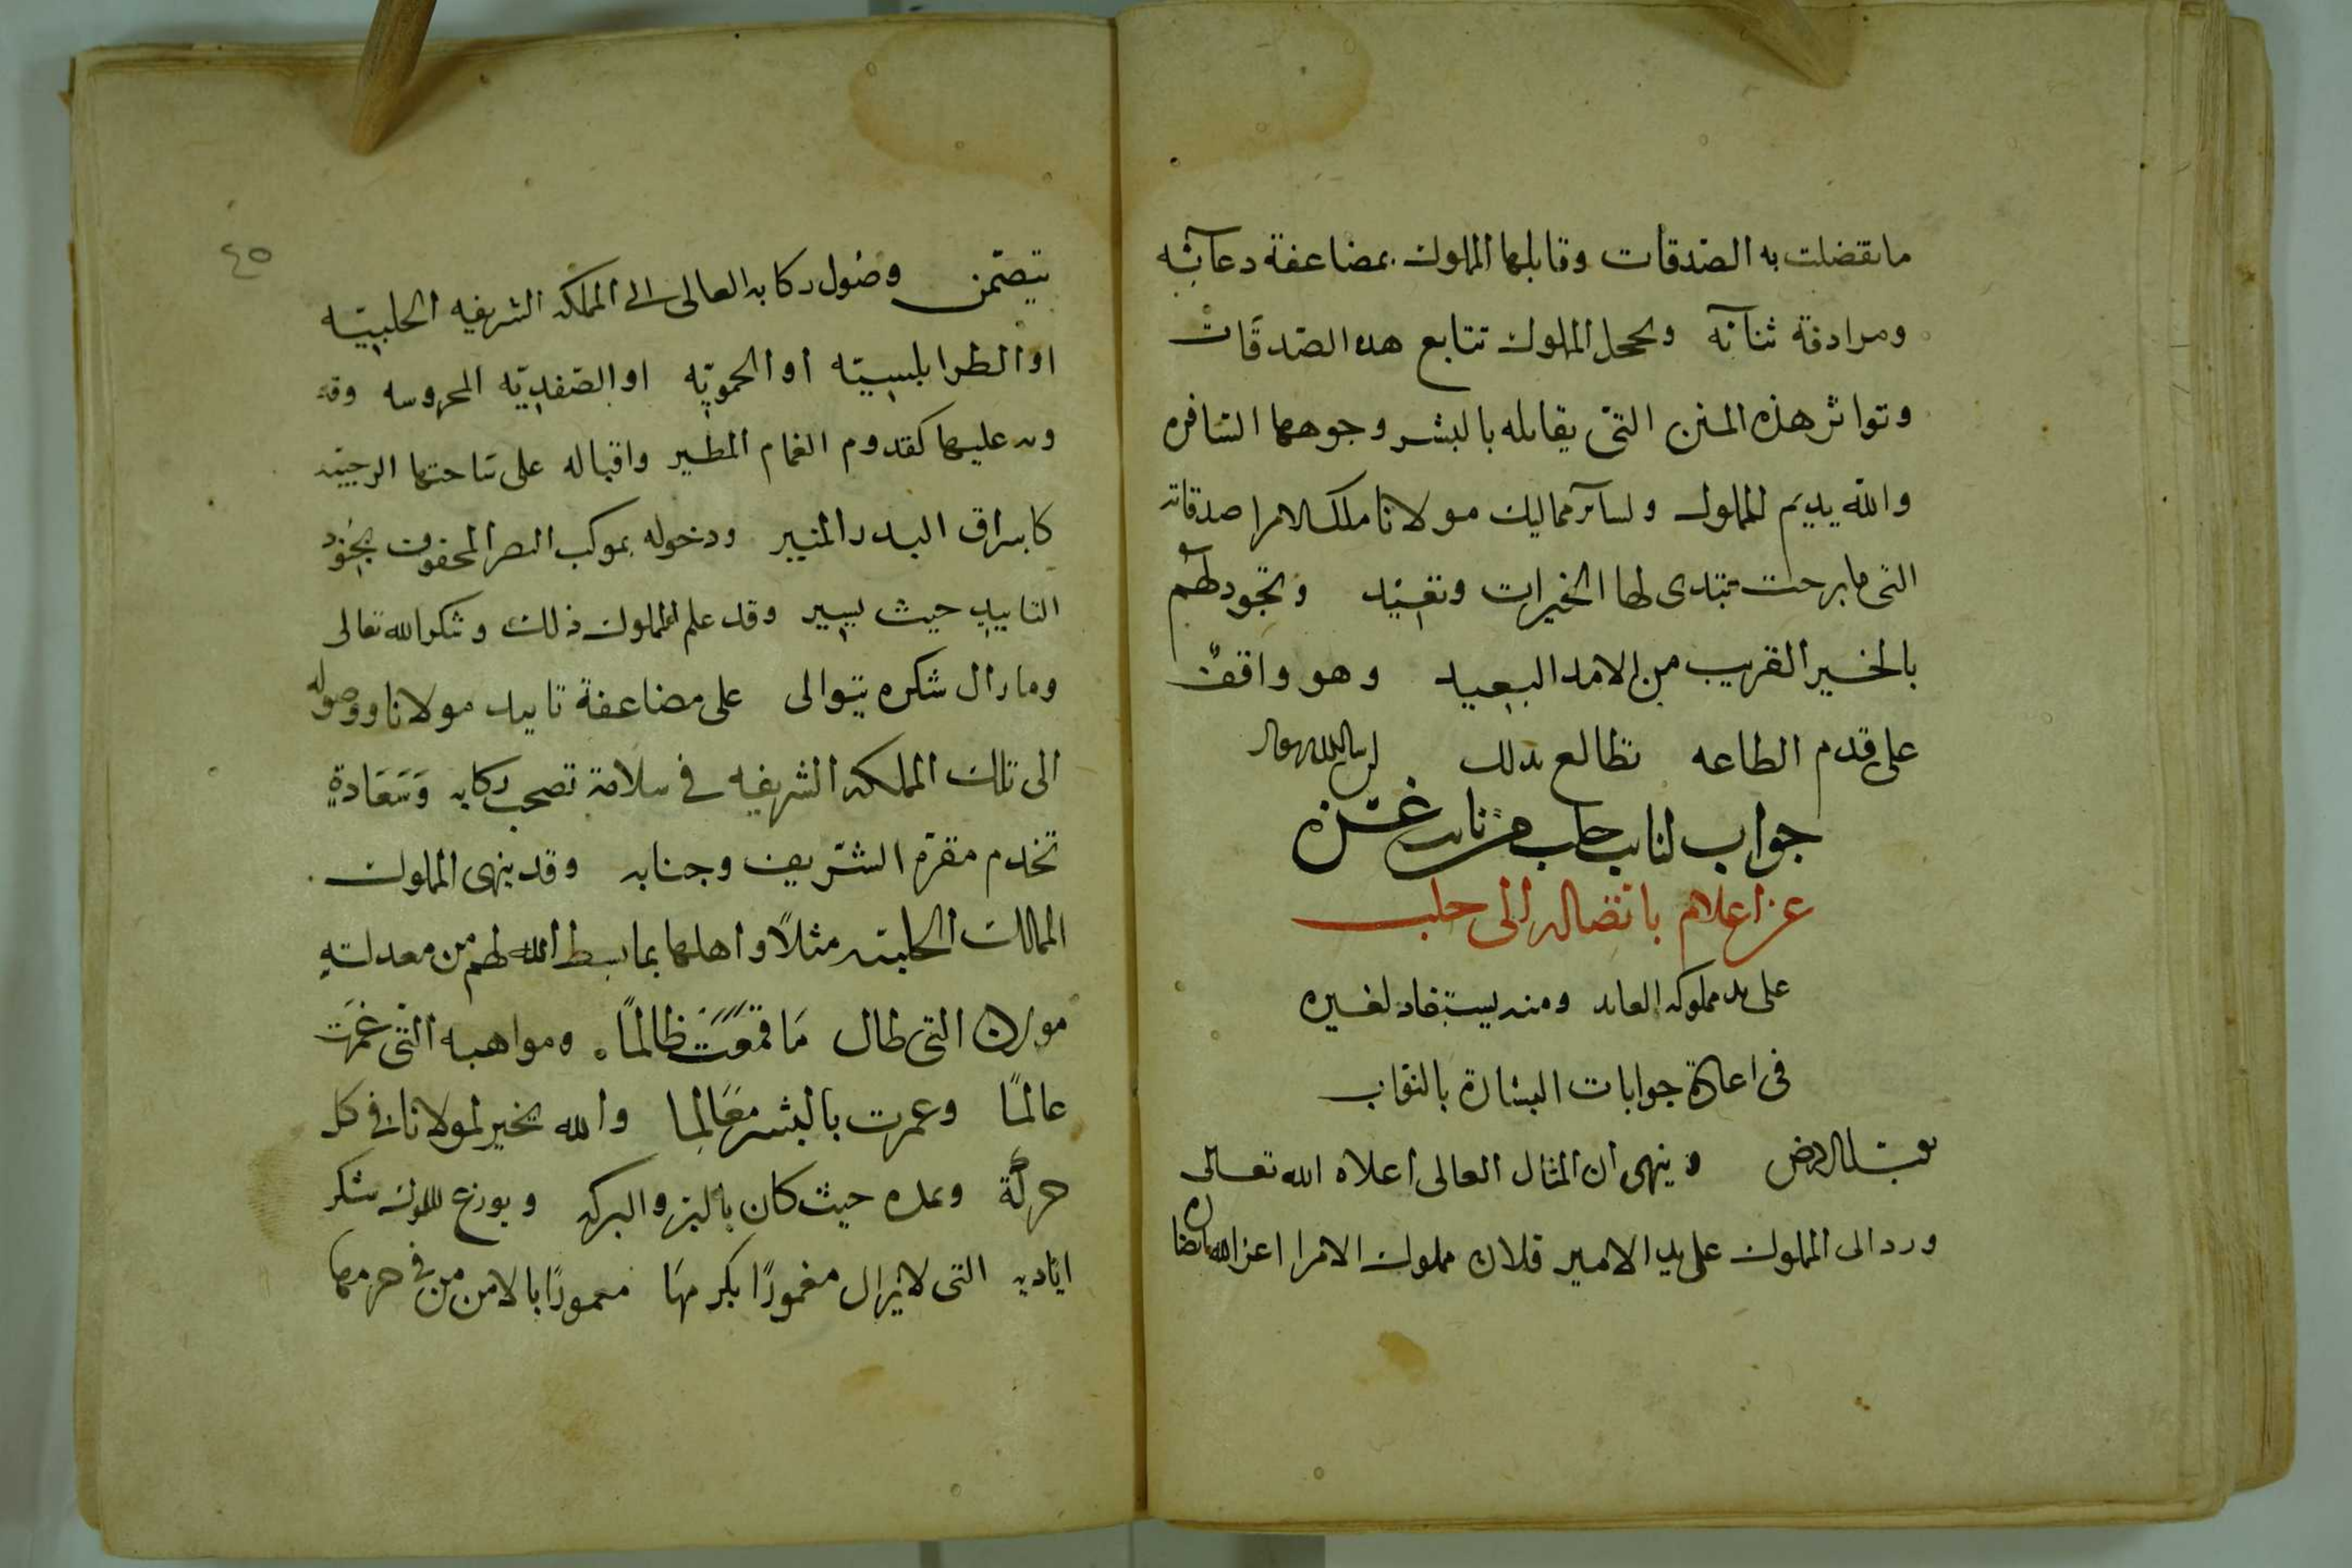 ما تفضلت به الصدقات وقابلها المملوك بمضاعفة دعآئه
ومرادفة ثنآئه وتحمل المملوك تتابع هذه الصدقات
وتواتر هذه المنن التى يقابله بالبشر وجوهها السافره
والله يديم للمملوك ولسآئر مماليك مولانا ملك الامرا صدقاته
التى ما برحت تبتدى لها الخيرات وتعيد وتجود لهم
بالخير القريب من الامد البعيد وهو واقف
على قدم الطاعه تطالع بذلك ان شا الله تعالى
جواب لنايب حلب من نايب غزة
عن اعلام باتصاله الى حلب
على يد مملوكه العايد ومنه يستفاد لغيره
فى اعادة جوابات البشارة بالنقاب
يقبل الارض وينهى ان المثال العالى اعلاه الله تعالى
ورد الى المملوك على يد الامير فلان مملوك الامرا اعز الله انصاره
٤٥
يتضمن وصول ركابه العالى الى المملكه الشريفه الحلبيه
او الطرابلسيه او الحمويه او الصفديه المحروسه وقد
ورد عليها كقدوم الغمام المطير واقباله على ساحتها الرحيبه
كاشراق البدر المنير ودخوله بموكب النصر المحفوف بجنود
التاييد حيث يسير وقد علم المملوك ذلك وشكر الله تعالى
وما زال شكره يتوالى على مضاعفة تاييد مولانا ووصوله
الى تلك المملكه الشريفه فى سلامة تصحب ركابه وسعادة
تخدم مقره الشريف وجنابه وقد ينهى المملوك
الممالك الحلبيه مثلاً واهلها بما بسط الله لهم من معدلته
التى طال ما قمعت ظالماً ومواهبه التى غمرت
عالماً وعمرت بالبشر معالما والله يخير لمولانا فى كل
حركة ويمده حيث كان بالبر والبركه ويوزع المملوك شكر
اياديه التى لا يزال مغموراً بكرمها معموراً بالامن من فى حرمها